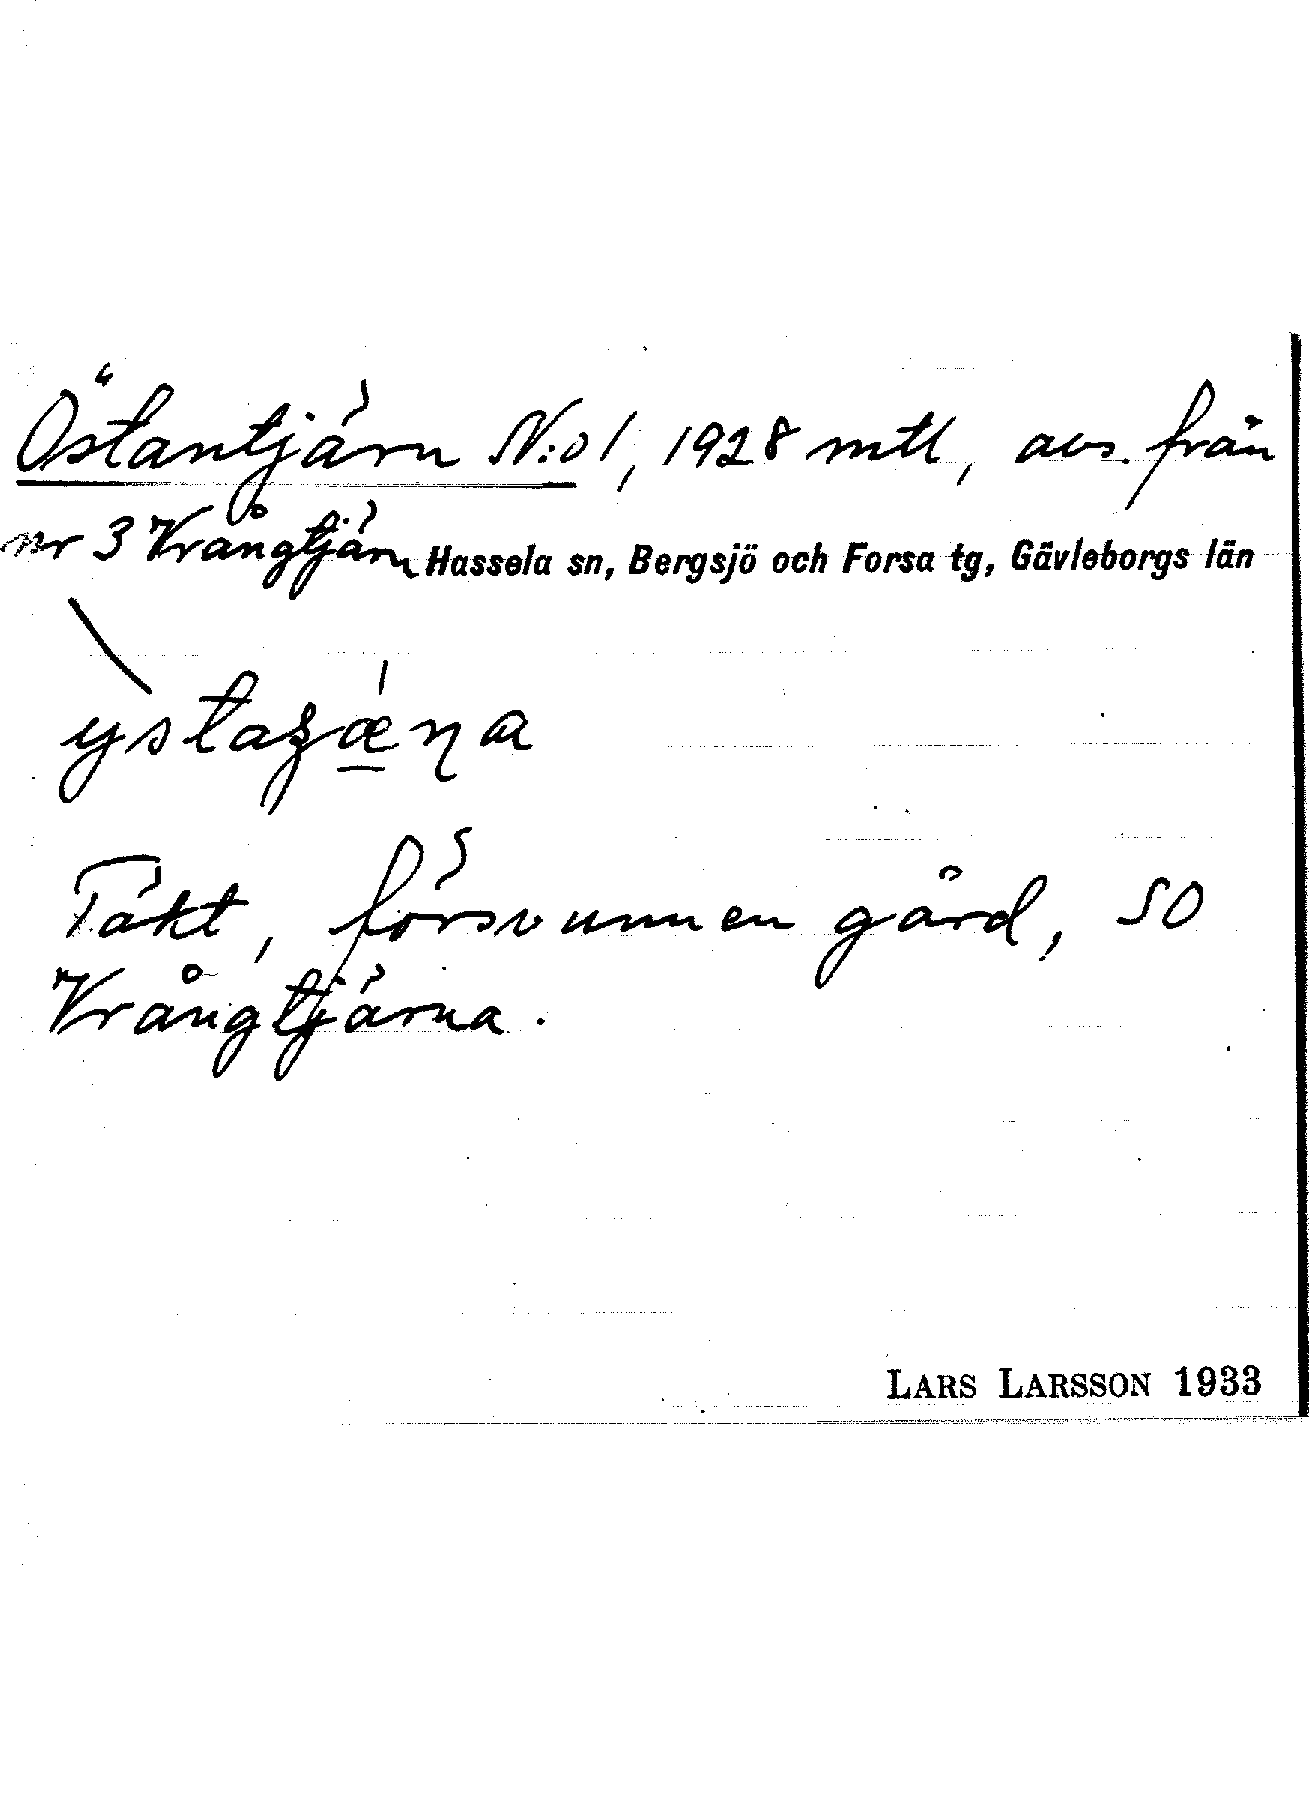 Östantjärn N:o 1, 1928 mtl, avs. från
nr 3 Vrångtjärn Hassela sn, Bergsjö och Forsa tg, Gävleborgs län
Täkt, försvunnen gård, SO
Vrångtjärna.
LARS LARSSON 1933